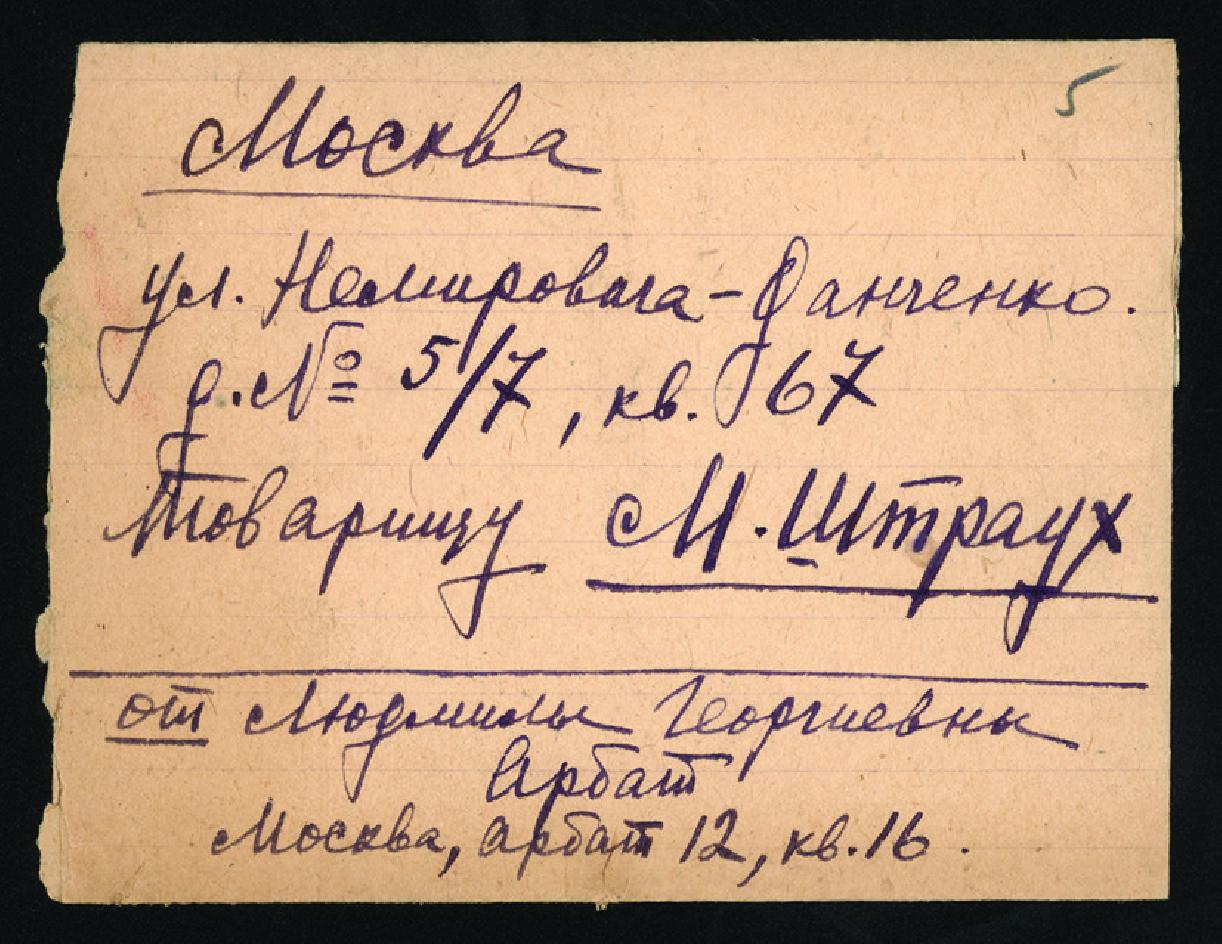 5
Москва
ул. Немировича-Данченко.
д. № 5/7, кв. 67
Товарищу М. Штраух
от Людмилы Георгиевны
Арбат
Москва, Арбат 12, кв. 16.